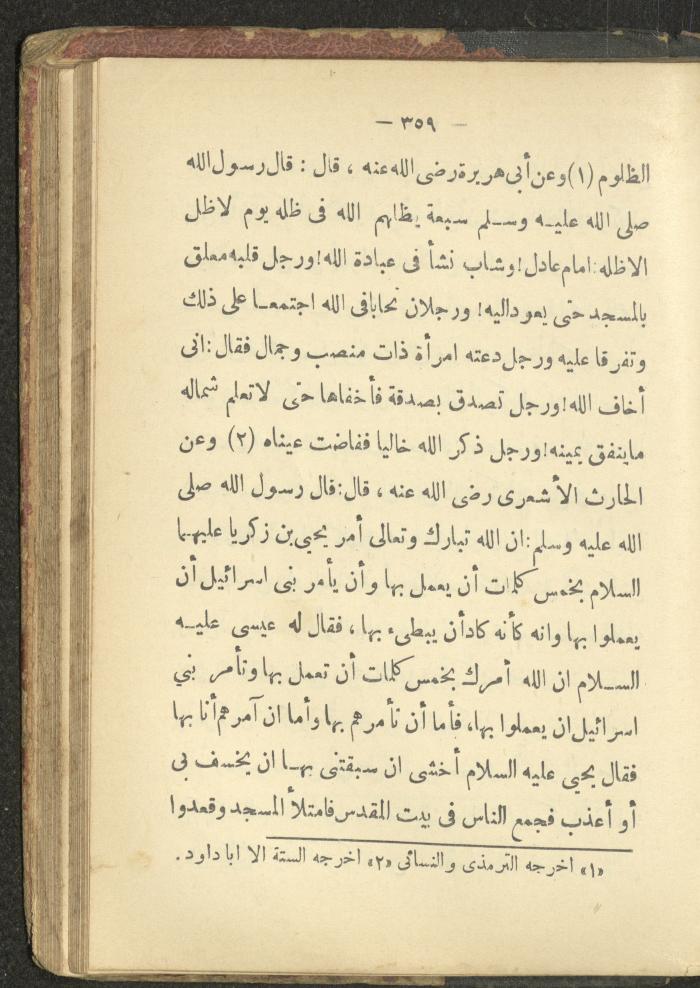 — ٣٥٩ —
الظلوم (١) وعن أبى هريرة رضى الله عنه ، قال : قال رسول الله
صلى الله عليه وسلم سبعة يظلهم الله فى ظله يوم لاظل
الاظله: امام عادل! وشاب نشأ فى عبادة الله! ورجل قلبه معلق
بالمسجد حتى يعود اليه! ورجلان تحابافى الله اجتمعا على ذلك
وتفرقا عليه ورجل دعته امرأة ذات منصب وجمال فقال: انى
أخاف الله! ورجل تصدق بصدقة فأخفاها حتى لاتعلم شماله
ماينفق يمينه! ورجل ذكر الله خاليا ففاضت عيناه (٢) وعن
الحارث الأشعرى رضى الله عنه ، قال: قال رسول الله صلى
الله عليه وسلم: ان الله تبارك وتعالى أمر يحيى بن زكريا عليهما
السلام بخمس كلمات أن يعمل بها وأن يأمر بنى اسرائيل أن
يعملوا بها وانه كأنه كادأن يبطىء بها ، فقال له عيسى عليه
السلام ان الله أمرك بخمس كلمات أن تعمل بها وتأمر بني
اسرائيل ان يعملوا بها، فأما أن تأمرهم بها وأما ان آمرهم أنا بها
فقال يحيى عليه السلام أخشى ان سبقتنى بها ان يخسف بى
أو أعذب فجمع الناس فى بيت المقدس فامتلأ المسجد وقعدوا
«١» اخرجه الترمذى والنسائى «٢» اخرجه الستة الا اباداود .